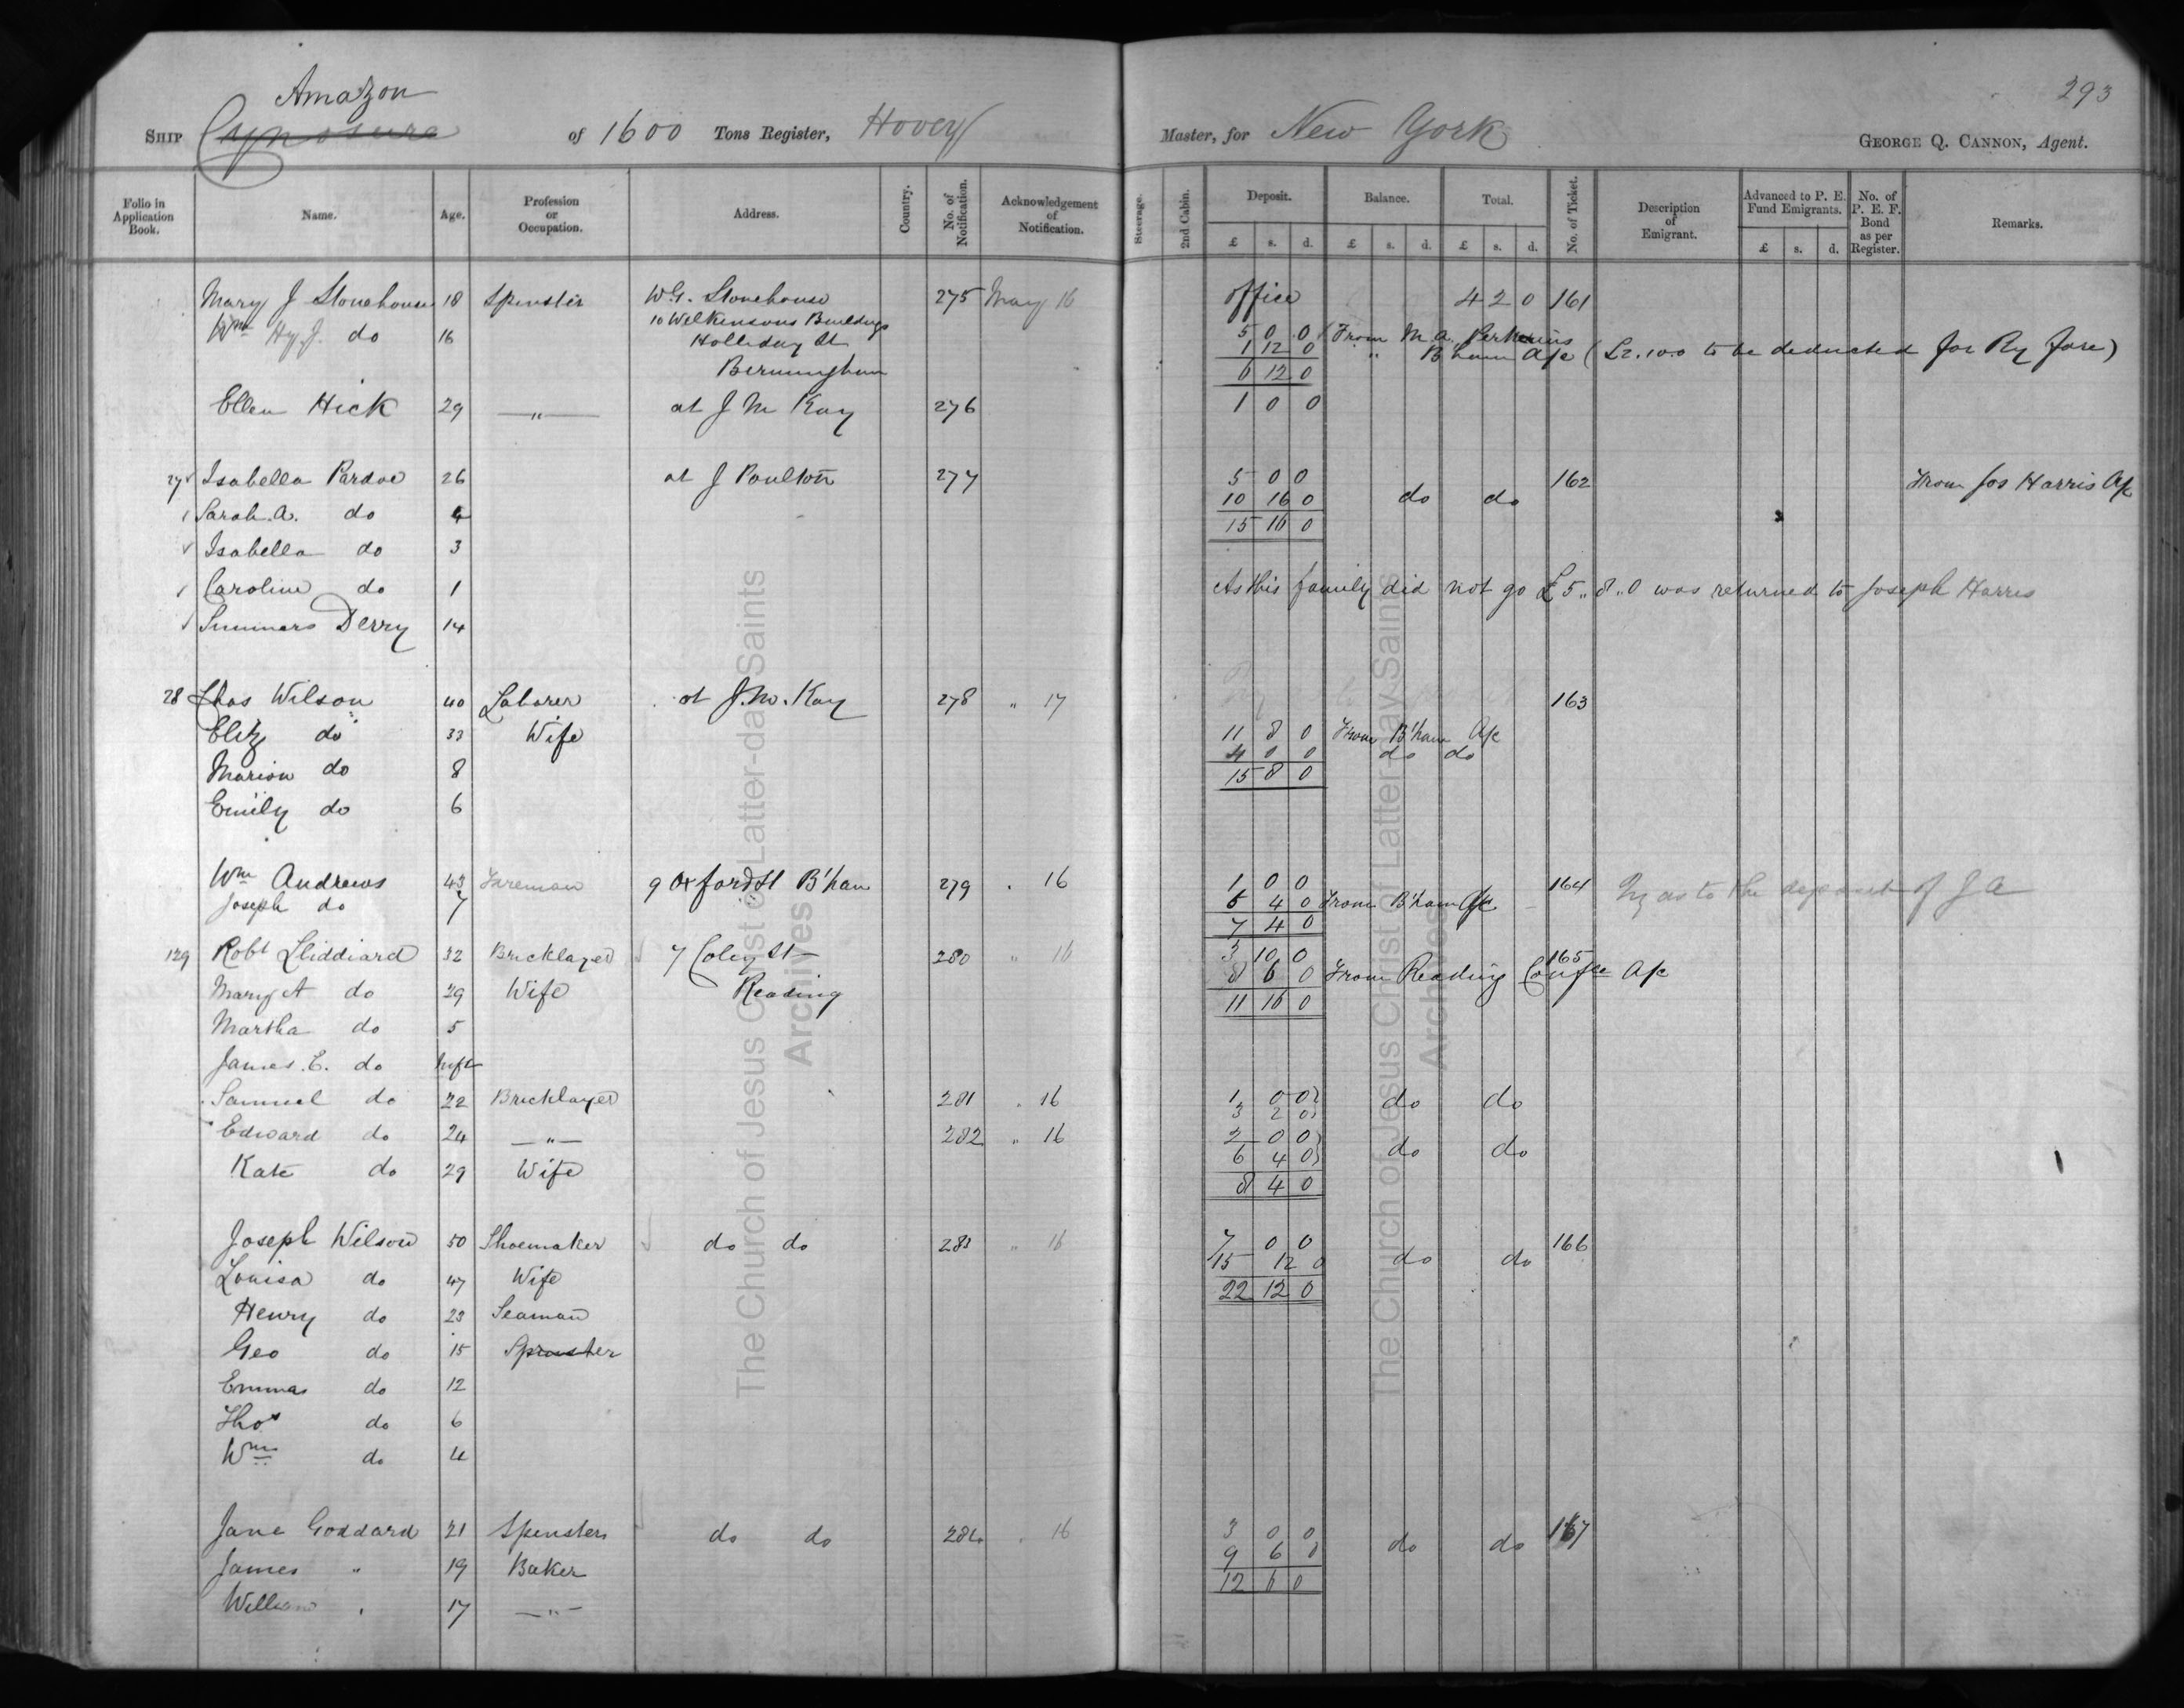 293
Amazon
SHIP Cynosure of 1600 Tons Register, Hovey Master, for New York GEORGE Q. CANNON, Agent.
Folio in Application Book. Name. Age. Profession or Occupation. Address. Country. No. of Notification. Acknowledgement of Notification. Steerage. 2nd Cabin. Deposit. £ s. d. Balance. £ s. d. Total. £ s. d. No. of Ticket. Description of Emigrant. Advanced to P. E. Fund Emigrants. £ s. d. No. of P. E. F. Bond as per Register. Remarks.
Mary J Stonehouse 18 Spinster W.G. Stonehouse 275 May 16 office 4 2 0 161
10 Wilkinsons Buildings
Wm Hy. J. do 16 Holliday St 5 0 0 From M A Perkins
1 12 0 " B'ham A/c (£2.10.0 to be deducted for Ry fare)
Birmingham 6 12 0
Ellen Hick 29 — " — at J M Kay 276 1 0 0
27 Isabella Pardoe 26 at J Poulton 277 5 0 0 162 From Jos Harris A/c
10 16 0 do do
Sarah. A. do 4 15 16 0
Isabella do 3
Caroline do 1 As this family did not go £5 „ 8 „ 0 was returned to Joseph Harris
Summers Derry 14
28 Thos Wilson 40 Laborer at J. M. Kay 278 " 17 163
Eliz do 33 Wife 11 8 0 From B'ham A/c
4 0 0 do do
Marion do 8 15 8 0
Emily do 6
Wm Andrews 43 Foreman 9 Oxford St B'ham 279 " 16 1 0 0 164 as to the deposit of J A
Joseph do 7 6 4 0 From B'ham A/c
7 4 0
129 Robt Lliddiard 32 Bricklayer 7 Coley St 280 " 16 3 10 0 165
8 6 0 From Reading Confce A/c
Mary A do 29 Wife Reading 11 16 0
Martha do 5
James. E. do Inft
Samuel do 22 Bricklayer 281 " 16 1 0 0 do do
3 2 0
Edward do 24 — " — 282 " 16 2 0 0 do do
6 4 0
Kate do 29 Wife 8 4 0
Joseph Wilson 50 Shoemaker do do 283 " 16 7 0 0 166
15 12 0 do do
Louisa do 47 Wife 22 12 0
Henry do 23 Seaman
Geo do 15 Spinster
Emma do 12
Thos do 6
Wm do 4
Jane Goddard 21 Spinster do do 284 " 16 3 0 0 167
9 6 0 do do
James " 19 Baker 12 6 0
William " 17 — " —
The Church of Jesus Christ of Latter-day Saints
Archives
The Church of Jesus Christ of Latter-day Saints
Archives